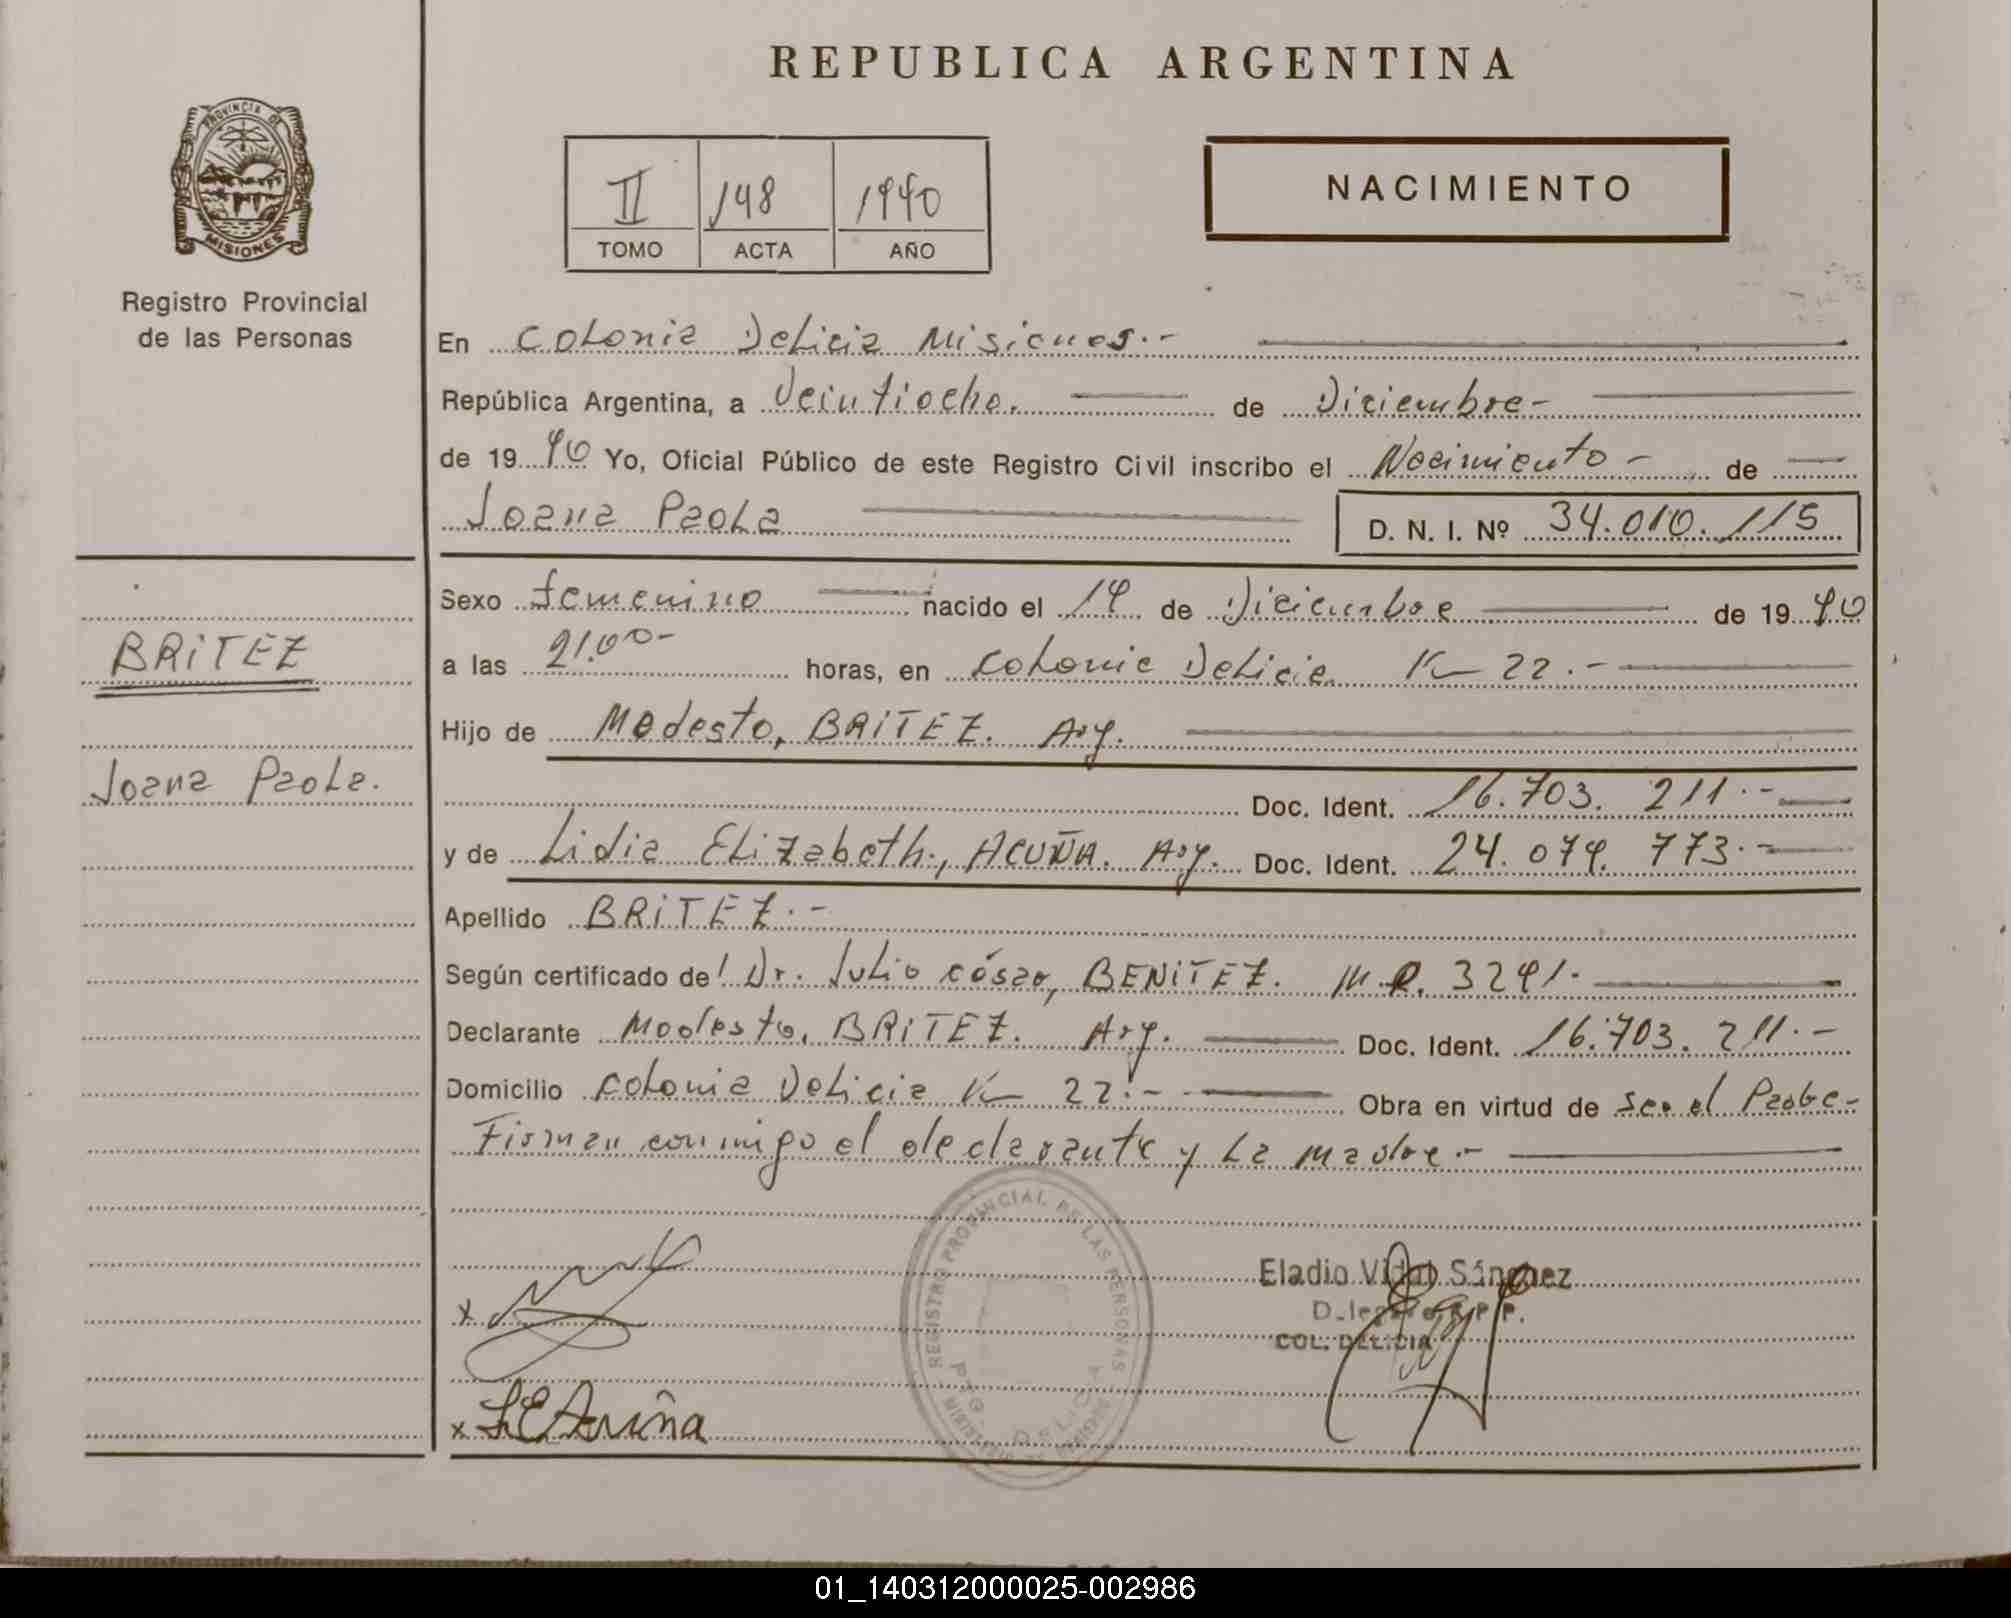 REPUBLICA ARGENTINA
PROVINCIA DE
MISIONES
Registro Provincial
de las Personas
II 148 1990
TOMO ACTA AÑO
NACIMIENTO
En Colonia Delicia Misiones.-
República Argentina, a Veintiocho. de Diciembre-
de 19 90 Yo, Oficial Público de este Registro Civil inscribo el Nacimiento - de
Joana Paola
D. N. I. Nº 34.010.115
BRITEZ
Joana Paola.
Sexo femenino nacido el 19 de Diciembre de 19 90
a las 21.00- horas, en Colonia Delicia K 22.-
Hijo de Modesto, BRITEZ. Arg.
Doc. Ident. 16.703.211.-
y de Lidia Elizabeth., ACUÑA. Arg. Doc. Ident. 24.079.773.-
Apellido BRITEZ.-
Según certificado de! Dr. Julio César, BENITEZ. M.P. 3291.
Declarante Modesto, BRITEZ. Arg. Doc. Ident. 16.703.211.-
Domicilio Colonia Delicia K 22.- Obra en virtud de ser el Padre-
Firman conmigo el declarante y La madre.-
REGISTRO PROVINCIAL DE LAS PERSONAS
DELICIA
Eladio Vidal Sánchez
Delegado R.P.P.
COL. DELICIA
x
x L E Acuña
01_140312000025-002986